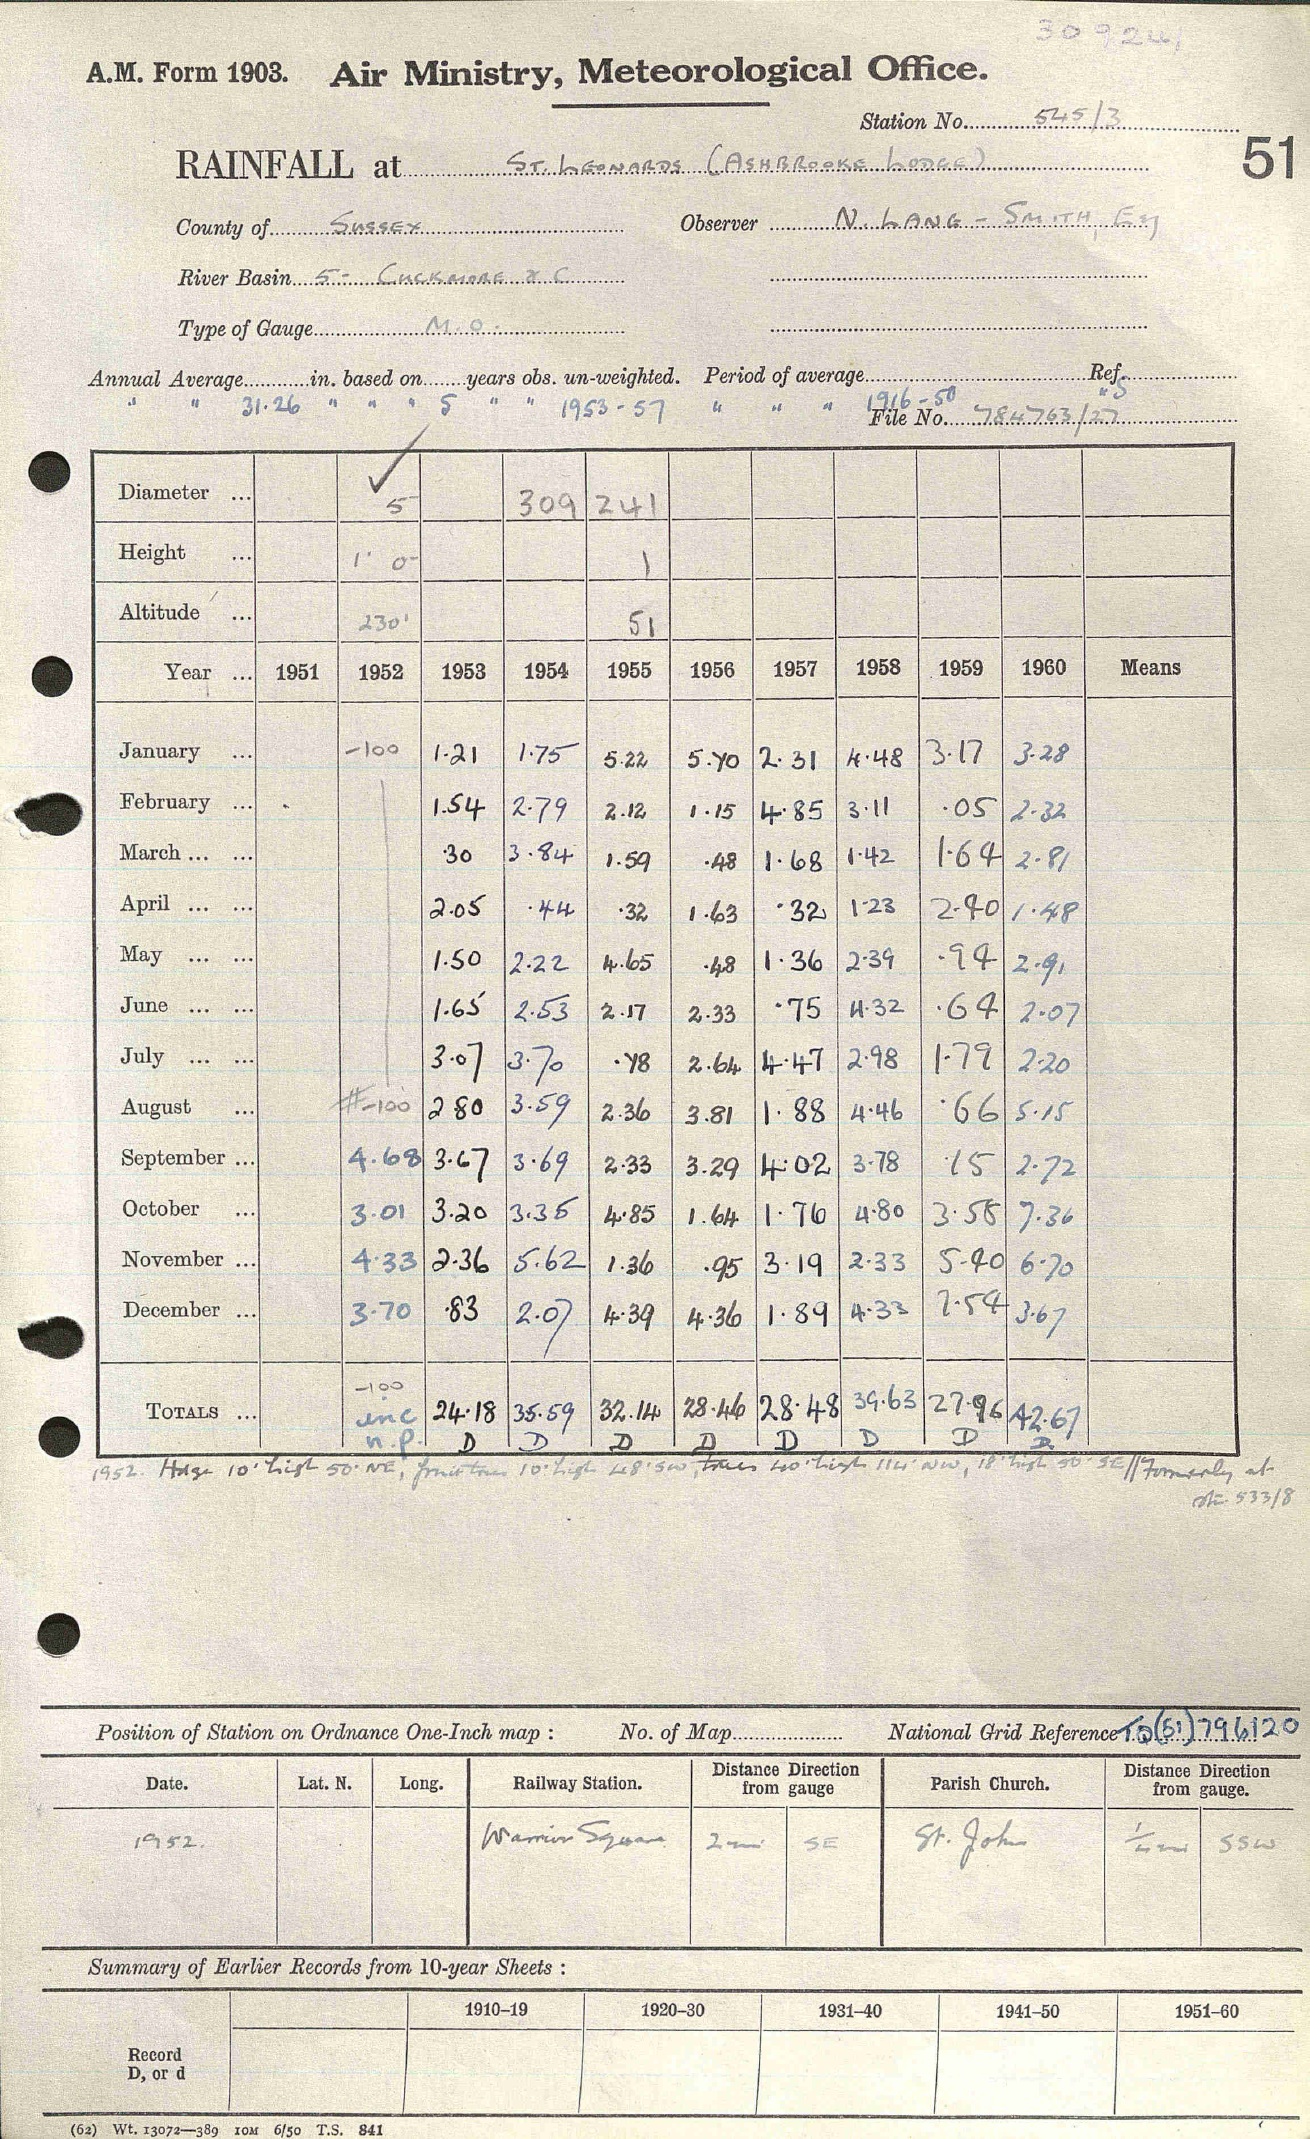 309241
A.M. Form 1903. Air Ministry, Meteorological Office.
Station No. 545/3
51
RAINFALL at St. Leonards (Ashbrooke Lodge)
County of Sussex Observer N. Lang-Smith, Esq
River Basin 5- Cuckmore &C
Type of Gauge M.O.
Annual Average in. based on years obs. un-weighted. Period of average Ref.
" " 31.26 " " " 5 " " 1953-57 " " " 1916-50 "S
File No. 784763/27
Diameter ... 5 309 241
Height ... 1' 0" 1
Altitude ... 230' 51
Year ... 1951 1952 1953 1954 1955 1956 1957 1958 1959 1960 Means
January ... -100 1.21 1.75 5.22 5.70 2.31 4.48 3.17 3.28
February ... 1.54 2.79 2.12 1.15 4.85 3.11 .05 2.32
March ... ... .30 3.84 1.59 .48 1.68 1.42 1.64 2.81
April ... ... 2.05 .44 .32 1.63 .32 1.23 2.40 1.48
May ... ... 1.50 2.22 4.65 .48 1.36 2.39 .94 2.91
June ... ... 1.65 2.53 2.17 2.33 .75 4.32 .64 2.07
July ... ... 3.07 3.70 .78 2.64 4.47 2.98 1.79 2.20
August ... -100 2.80 3.59 2.36 3.81 1.88 4.46 .66 5.15
September ... 4.68 3.67 3.69 2.33 3.29 4.02 3.78 .15 2.72
October ... 3.01 3.20 3.35 4.85 1.64 1.76 4.80 3.58 7.36
November ... 4.33 2.36 5.62 1.36 .95 3.19 2.33 5.40 6.70
December ... 3.70 .83 2.07 4.39 4.36 1.89 4.33 7.54 3.67
-100
TOTALS ... inc 24.18 35.59 32.14 28.46 28.48 39.63 27.96 42.67
n.p. D D D D D D D D
1952. Hedge 10' high 50' NE, fruit trees 10' high 48' SW, trees 40' high 114' NW, 18' high 50' SE // Formerly at
stn. 533/8
Position of Station on Ordnance One-Inch map : No. of Map National Grid Reference TQ(51)796120
Date. Lat. N. Long. Railway Station. Distance Direction from gauge Parish Church. Distance Direction from gauge.
1952. Warrior Square 2mi SE St. John 1/4mi SSW
Summary of Earlier Records from 10-year Sheets :
1910–19 1920–30 1931–40 1941–50 1951–60
Record
D, or d
(62) Wt. 13072—389 10M 6/50 T.S. 841